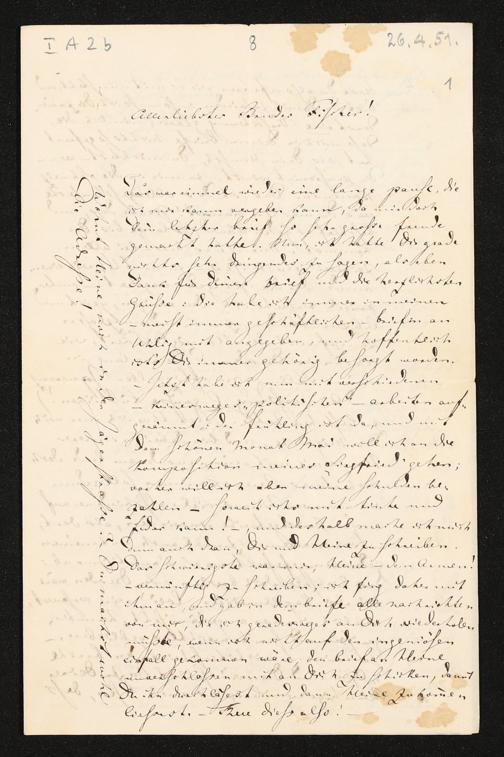 I A 2 b
8
26.4.51.
1
Allerliebster Bruder Fischer!
Das war einmal wieder eine lange pause, die
ich mir kaum vergeben kann, da mir doch
Dein letzter brief so sehr grosse freude
gemacht hatte. Nun, ich hatte Dir grade
nichts sehr dringendes zu sagen, als eben
Dank für Deinen brief und die herzlichsten
Grüsse: die habe ich immer in meinen
– meist immer geschäftlichen – briefen an
Uhlig mit angegeben, und hoffentlich
sind sie immer gehörig besorgt worden.
Jetzt habe ich nun mit verschiedenen
– keineswegs „politischen“ – arbeiten auf-
geräumt: der frühling ist da, und mit
dem schönen monat Mai will ich an die
komposition meines Siegfried gehen;
vorher will ich aber meine schulden be-
zahlen – soweit ich's mit tinte und
feder kann! –, und deshalb mache ich mich
denn auch dran, Dir und Heine zu schreiben.
Das schwierigste war mir, Heine – dem Armen!
– vernünftig zu schreiben: ich fing daher mit
ihm an, und gab in dem briefe alle nachrichten
von mir, die ich geradeswegs an Dich wiederholen
müsste, wenn ich nicht auf den ingeniösen
einfall gekommen wäre, den brief an Heine
unverschlossen mit an Dich zu schicken, damit
Du ihn durchläsest und dann Heine zukommen
liessest. – Thue diess also! –
Wohnt Heine noch in der Jägerstrasse?
Die Adresse!